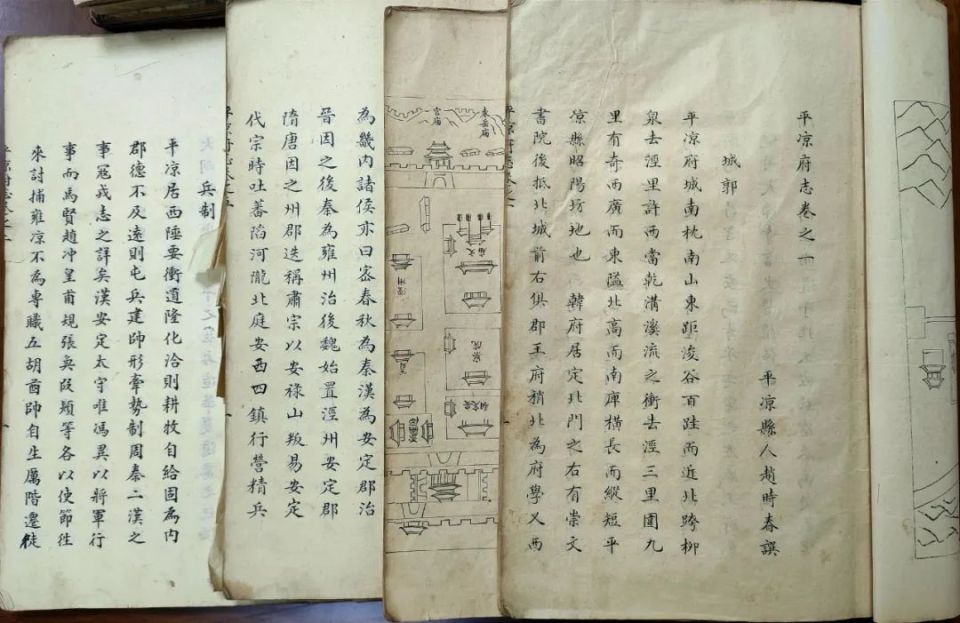 平凉府志卷之一
平凉縣人趙時春譔
城郭
平凉府城南枕南山東距浚谷百跬而近北跨柳
泉去涇里許西當乾溝溪流之衝去涇三里圍九
里有奇西廣而東隘北高而南庳横長而縱短平
凉縣昭陽坊地也 韓府居定北門之右有崇文
書院後抵北城前右俱郡王府稍北為府學又西
東岳廟
宮廟
為畿内諸侯亦曰密春秋為秦漢為安定郡治
晉因之後秦為雍州治後魏始置涇州安定郡
隋唐因之州郡迭稱肅宗以安祿山叛易安定
代宗時吐蕃陷河隴北庭安西四鎮行營精兵
平凉府志卷之五
兵制
平凉居西陲要衝道隆化洽則耕牧自給固為内
郡德不及遠則屯兵建帥形牽勢制周秦二漢之
事冦戎志之詳矣漢安定太守唯馮異以將軍行
事而馬賢趙冲皇甫規張奐叚熲等各以使節徃
來討捕雍凉不為專職五胡酋帥自生厲階遷徒
平凉府志卷之二